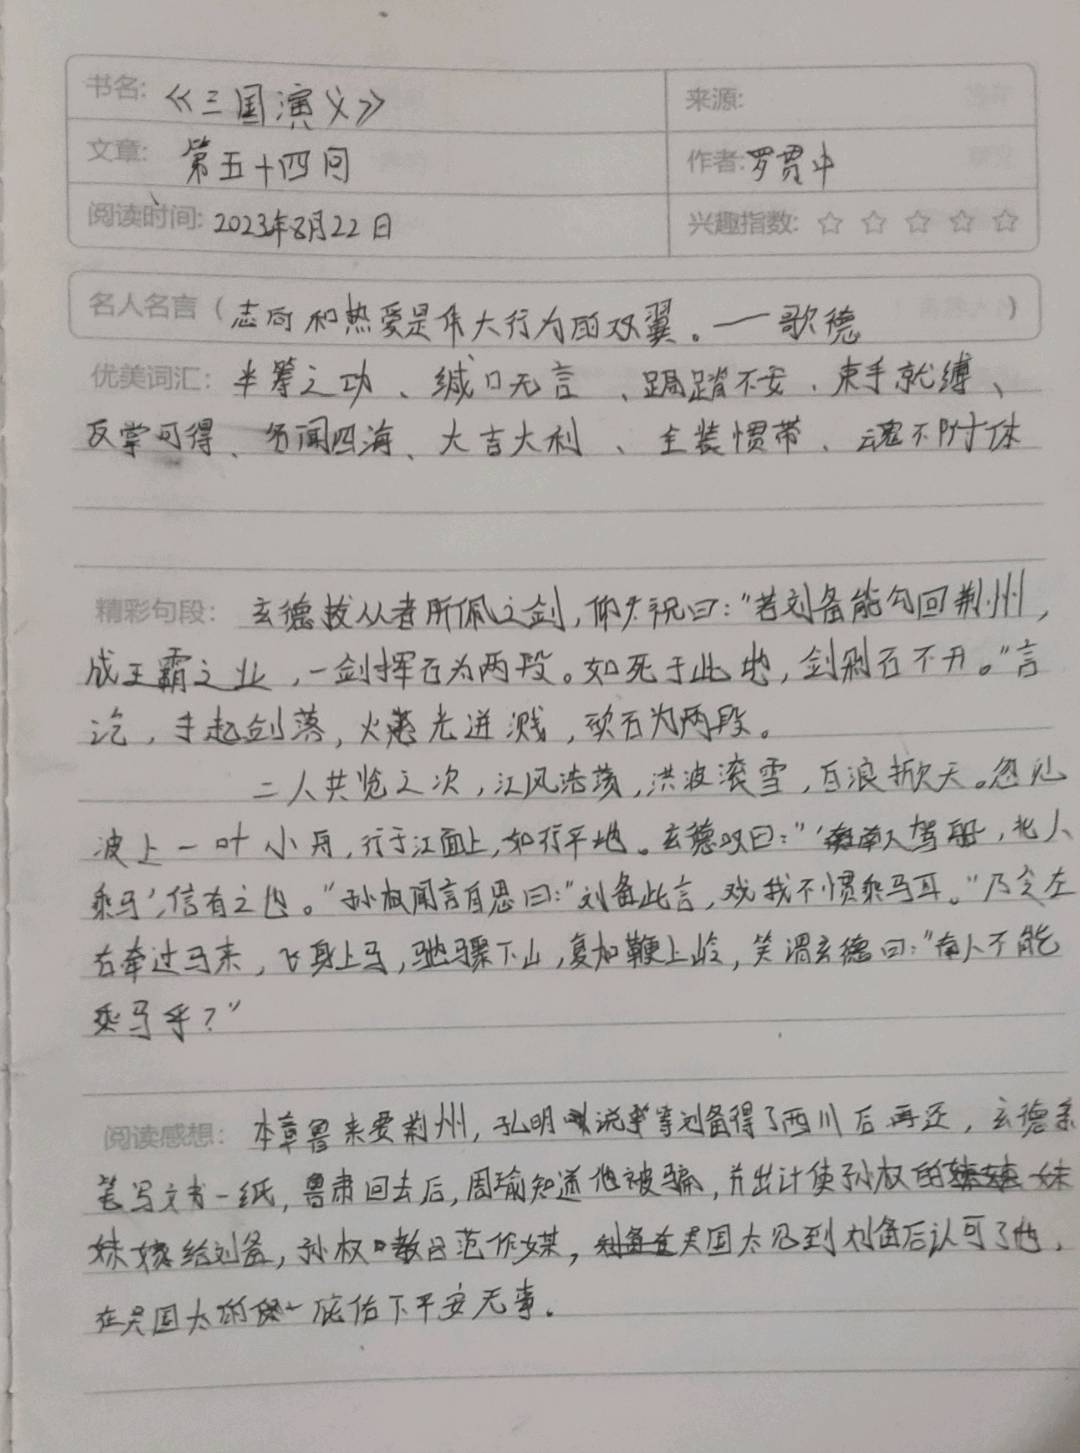 书名: 《三国演义》 来源:
文章: 第五十四回 作者:罗贯中
阅读时间: 2023年8月22日 兴趣指数: ☆ ☆ ☆ ☆ ☆
名人名言（志向和热爱是伟大行为的双翼。——歌德）
优美词汇: 半筹之功、缄口无言、跼蹐不安、束手就缚、
反掌可得、名闻四海、大吉大利、全装惯带、魂不附体
精彩句段: 玄德拔从者所佩之剑,仰天祝曰:"若刘备能勾回荆州,
成王霸之业,一剑挥石为两段。如死于此地,剑剁石不开。"言
讫,手起剑落,火光迸溅,砍石为两段。
二人共览之次,江风浩荡,洪波滚雪,白浪掀天。忽见
波上一叶小舟,行于江面上,如行平地。玄德叹曰:"'南人驾船,北人
乘马',信有之也。"孙权闻言自思曰:"刘备此言,戏我不惯乘马耳。"乃令左
右牵过马来,飞身上马,驰骤下山,复加鞭上岭,笑谓玄德曰:"南人不能
乘马乎?"
阅读感想: 本章鲁来要荆州,孔明说等刘备得了西川后再还,玄德亲
笔写文书一纸,鲁肃回去后,周瑜知道他被骗,并出计使孙权的妹
妹嫁给刘备,孙权教吕范作媒,吴国太见到刘备后认可了他,
在吴国太的庇佑下平安无事。